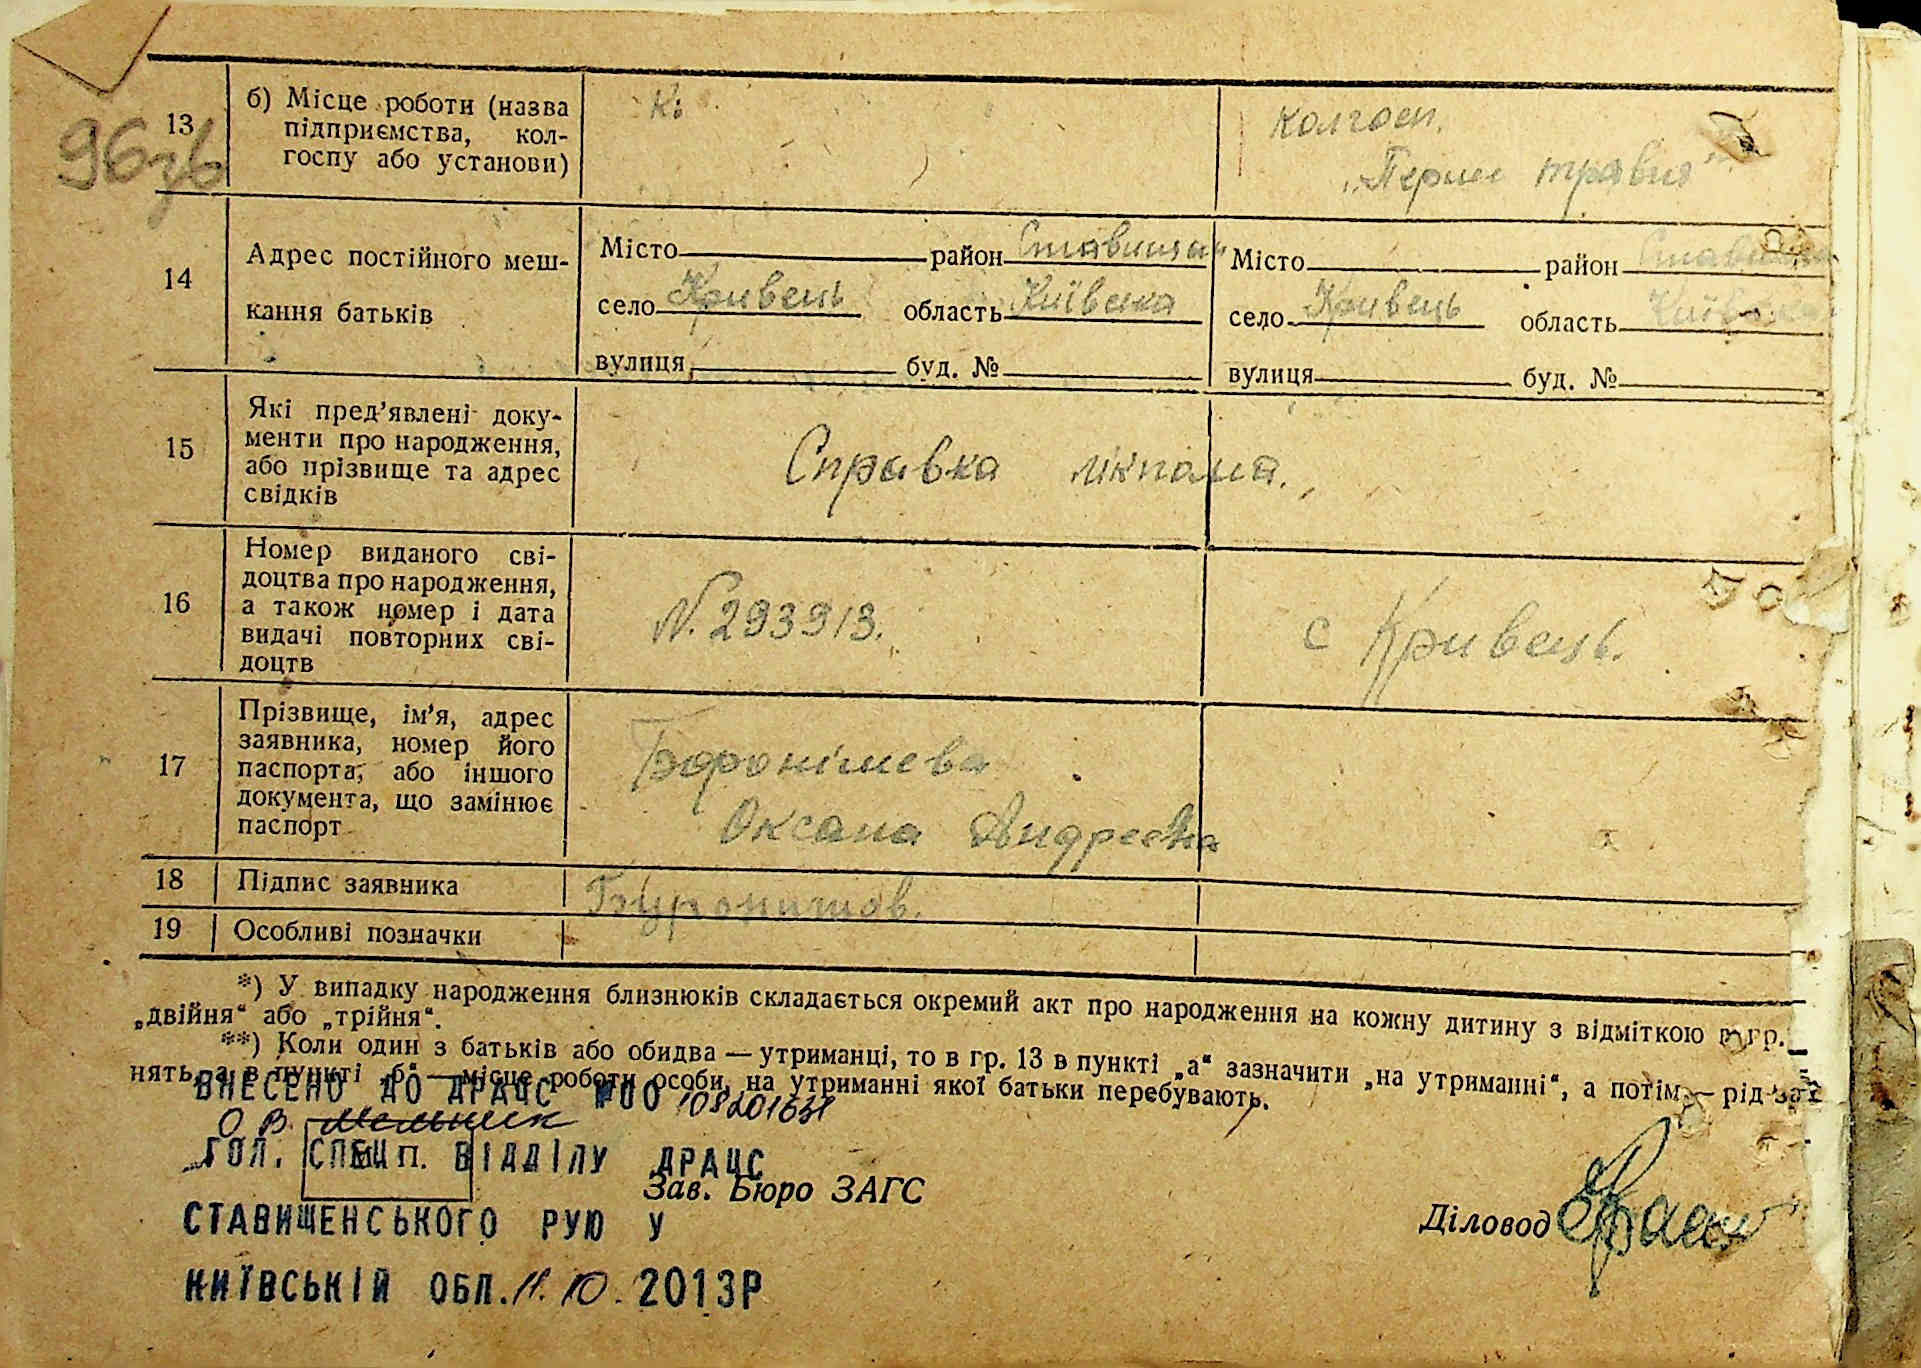 96зв
13
б) Місце роботи (назва
підприємства, кол-
госпу або установи)
к:
Колгосп.
„Перше травня"
14
Адрес постійного меш-
кання батьків
Місто район Ставищан
село Кривець область Київська
вулиця буд. №
Місто район Ставищан
село Кривець область Київська
вулиця буд. №
15
Які пред'явлені доку-
менти про народження,
або прізвище та адрес
свідків
Справка лікпома.
16
Номер виданого сві-
доцтва про народження,
а також номер і дата
видачі повторних сві-
доцтв
N. 293913.
с Кривець.
17
Прізвище, ім'я, адрес
заявника, номер його
паспорта, або іншого
документа, що замінює
паспорт
Оксана Андреевна
18
Підпис заявника
19
Особливі позначки
*) У випадку народження близнюків складається окремий акт про народження на кожну дитину з відміткою в гр.
„двійня" або „трійня".
**) Коли один з батьків або обидва — утриманці, то в гр. 13 в пункті „а" зазначити „на утриманні", а потім — рід за
нять, а в пункті „б" — місце роботи особи, на утриманні якої батьки перебувають.
ВНЕСЕНО ДО ДРАЦС №00
О В. Мельник
ГОЛ. СПЕЦ ВІДДІЛУ ДРАЦС
М. П.
Зав. Бюро ЗАГС
СТАВИЩЕНСЬКОГО РУЮ У
Діловод
КИЇВСЬКІЙ ОБЛ. 11. 10. 2013Р